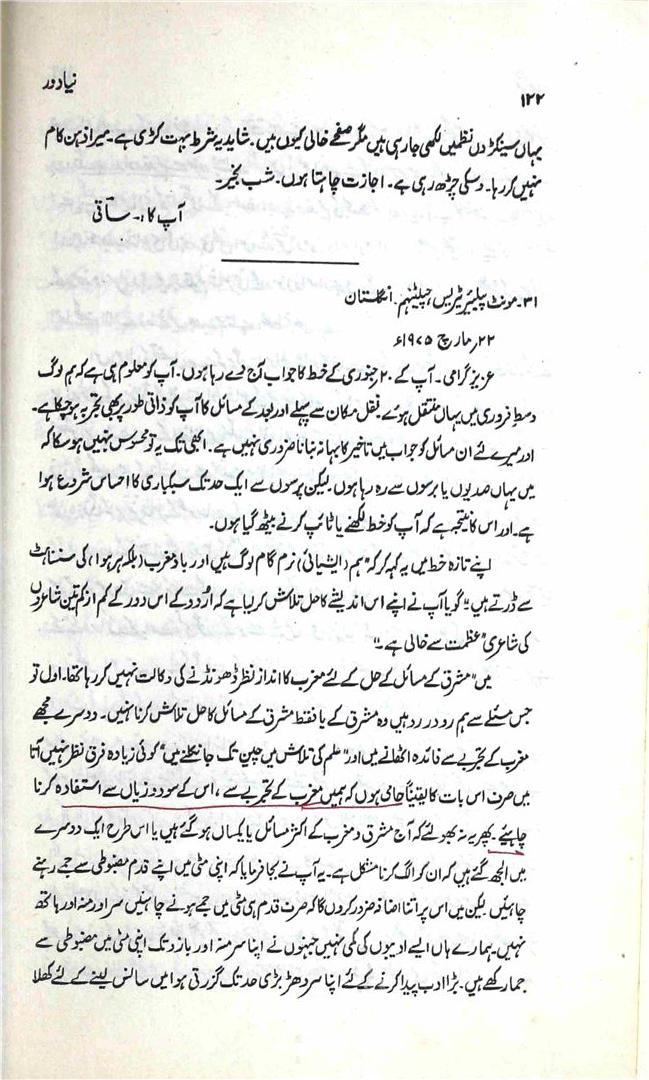 ۱۲۲
نیا دور
یہاں سینکڑوں نظمیں لکھی جا رہی ہیں مگر صفحے خالی کیوں ہیں۔ شاید یہ شرط بہت کڑی ہے۔ میرا ذہن کام
نہیں کر رہا۔ وسکی چڑھ رہی ہے۔ اجازت چاہتا ہوں۔ شب بخیر۔
آپ کا:۔ ساقی
۳۱۔ مونٹ پلیئر ٹیریس، چپلٹنہم۔ انگلستان
۲۲؍ مارچ ۱۹۷۵ء
عزیز گرامی۔ آپ کے ۲۰ جنوری کے خط کا جواب آج دے رہا ہوں۔ آپ کو معلوم ہی ہے کہ ہم لوگ
وسط فروری میں یہاں منتقل ہوئے۔ نقل مکان سے پہلے اور بعد کے مسائل کا آپ کو ذاتی طور پر بھی تجربہ ہو چکا ہے۔
اور میرے لئے ان مسائل کو جواب میں تاخیر کا بہانہ بنانا ضروری نہیں ہے۔ ابھی تک یہ تو محسوس نہیں ہو سکا کہ
میں یہاں صدیوں یا برسوں سے رہ رہا ہوں۔ لیکن پرسوں سے ایک حد تک سبکباری کا احساس شروع ہوا
ہے۔ اور اس کا نتیجہ ہے کہ آپ کو خط لکھنے یا ٹائپ کرنے بیٹھ گیا ہوں۔
اپنے تازہ خط میں یہ کہہ کر کہ "ہم (ایشیائی) نرم گام لوگ ہیں اور باد مغرب (بلکہ ہر ہوا) کی سنسناہٹ
سے ڈرتے ہیں۔" گویا آپ نے اپنے اس اندیشے کا حل تلاش کر لیا ہے کہ اردو کے اس دور کے کم از کم تین شاعروں
کی شاعری "عظمت سے خالی ہے۔"
میں "مشرق کے مسائل کے حل کے لئے مغرب کا انداز نظر ڈھونڈنے کی وکالت نہیں کر رہا تھا۔ اول تو
جس مسئلے سے ہم رو در رو ہیں وہ مشرق کے یا فقط مشرق کے مسائل کا حل تلاش کرنا نہیں۔ دوسرے مجھے
مغرب کے تجربے سے فائدہ اٹھانے میں اور "علم کی تلاش میں چین تک جا نکلنے میں" کوئی زیادہ فرق نظر نہیں آتا
میں صرف اس بات کا یقیناً حامی ہوں کہ ہمیں مغرب کے تجربے سے، اس کے سود و زیاں سے استفادہ کرنا
چاہئے۔ پھر یہ نہ بھولئے کہ آج مشرق و مغرب کے اکثر مسائل یا یکساں ہو گئے ہیں یا اس طرح ایک دوسرے
میں الجھ گئے ہیں کہ ان کو الگ کرنا مشکل ہے۔ یہ آپ نے بجا فرمایا کہ اپنی مٹی میں اپنے قدم مضبوطی سے جمے رہنے
چاہئیں لیکن میں اس پر اتنا اضافہ ضرور کروں گا کہ صرف قدم ہی مٹی میں جمے ہونے چاہئیں سر اور منہ اور ہاتھ
نہیں۔ ہمارے ہاں ایسے ادیبوں کی کمی نہیں جنہوں نے اپنا سر منہ اور بازو تک اپنی مٹی میں مضبوطی سے
جما رکھے ہیں۔ بڑا ادب پیدا کرنے کے لئے اپنا سر دھڑ بڑی حد تک گزرتی ہوا میں سانس لینے کے لئے کھلا